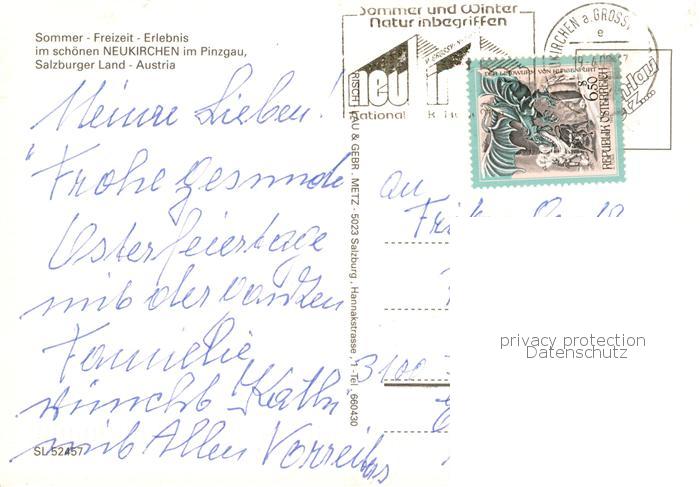 Sommer - Freizeit - Erlebnis
im schönen NEUKIRCHEN im Pinzgau,
Salzburger Land - Austria
Sommer und Winter
Natur inbegriffen
neu
National
KIRCHEN a. GROSSV
e
DER LINDWURM VON KLAGENFURT
S 6,50
REPUBLIK ÖSTERREICH
Meine Lieben!
Frohe gesunde
Osterfeiertage
mit der ganzen
Familie
wünscht Kathi
mit Allen Vorreiters
RISCH-LAU & GEBR. METZ · 5023 Salzburg, Hannakstrasse 1 · Tel. 660430
An
3100
SL 52457
privacy protection
Datenschutz